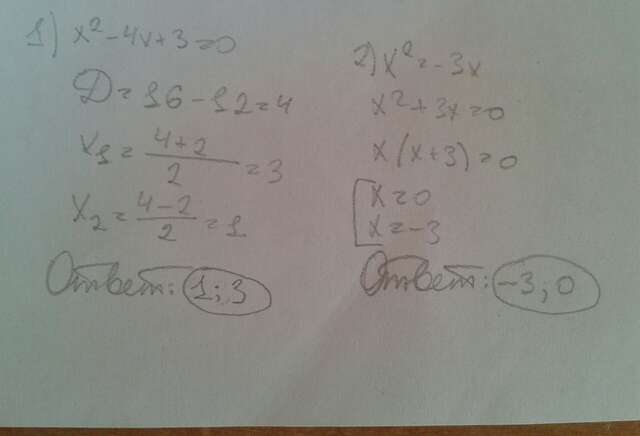 1) x² - 4x + 3 = 0
D = 16 - 12 = 4
x₁ = (4 + 2)/2 = 3
x₂ = (4 - 2)/2 = 1
Ответ: 1; 3
2) x² = -3x
x² + 3x = 0
x(x + 3) = 0
[x = 0
x = -3
Ответ: -3; 0